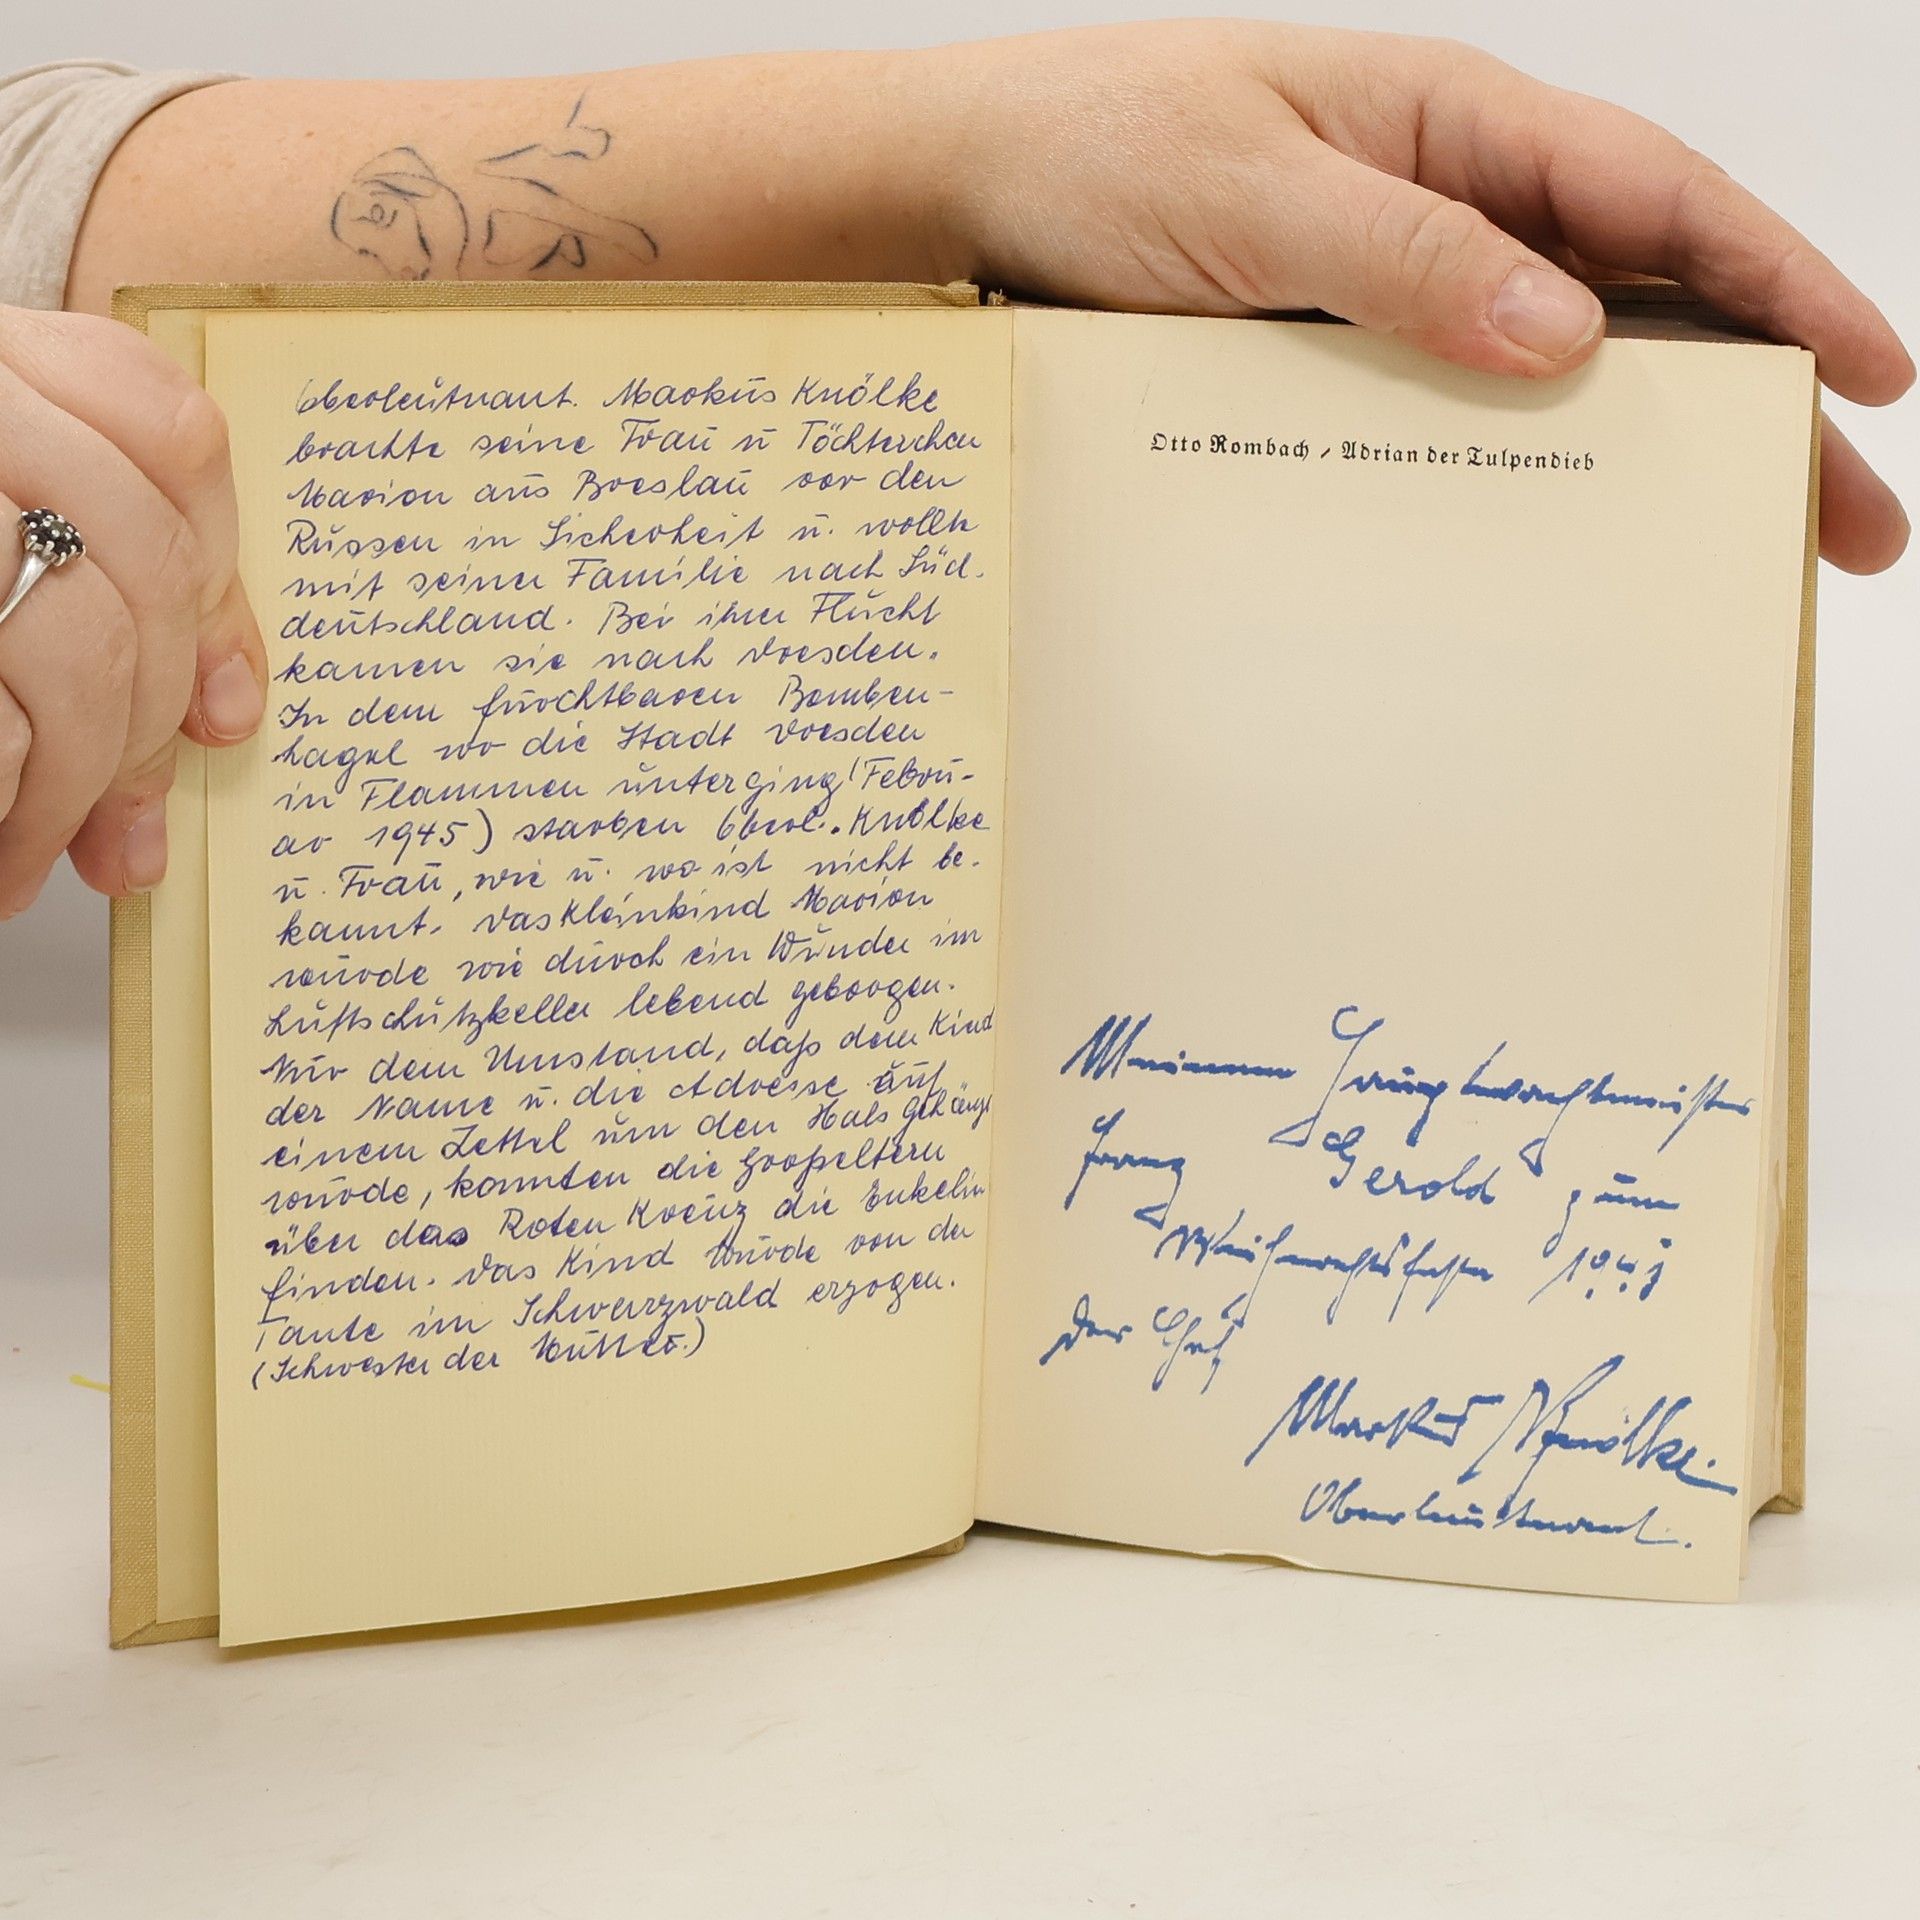 Oberleutnant. Markus Knölke
brachte seine Frau u Töchterchen
Marion aus Breslau vor den
Russen in Sicherheit u. wollte
mit seiner Familie nach Süd.
deutschland. Bei ihrer Flucht
kamen sie nach Dresden.
In dem furchtbaren Bomben-
hagel wo die Stadt Dresden
in Flammen unterging (Febru-
ar 1945) starben Oberl. Knölke
u. Frau, wie u. wo ist nicht be.
kannt. Das Kleinkind Marion
wurde wie durch ein Wunder im
Luftschutzkeller lebend geborgen.
Nur dem Umstand, daß dem Kind
der Name u. die Adresse auf
einem Zettel um den Hals gehängt
wurde, konnten die Großeltern
über das Roten Kreuz die Enkelin
finden. Das Kind wurde von der
Tante im Schwarzwald erzogen.
(Schwester der Mutter.)
Otto Rombach / Adrian der Tulpendieb
Meinem Hauptwachtmeister
Franz Gerold zum
Weihnachtsfeste
Der Chef
Markus Knölke
Oberleutnant.